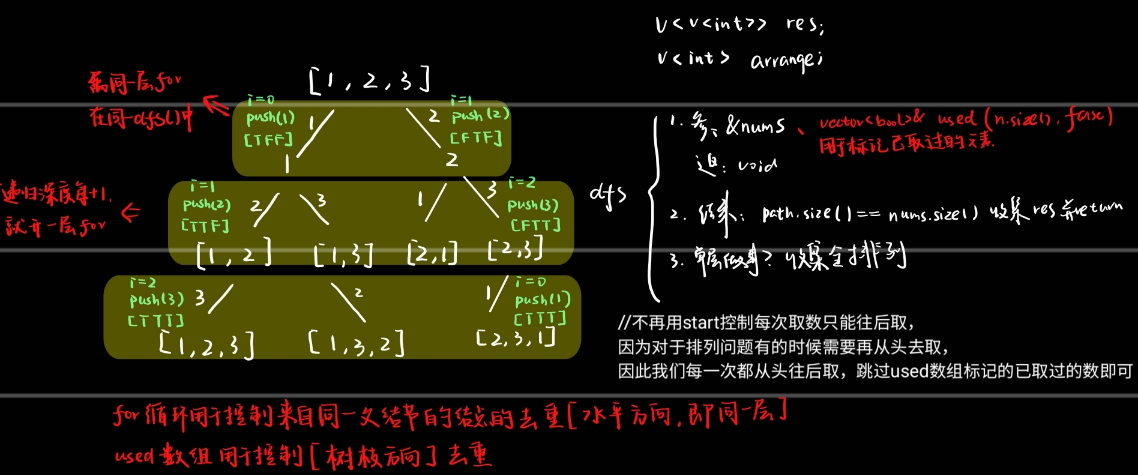 v<v<int>> res;
v<int> arrange;
属同一层for
在同一dfs()中
[1, 2, 3]
i=0
push(1)
[TFF]
1
2
i=1
push(2)
[FTF]
1
2
递归深度每+1,
就开一层for
i=1
push(2)
[TTF]
2
3
1
3
i=2
push(3)
[FTT]
[1, 2]
[1,3]
[2,1]
[2,3]
i=2
push(3)
[TTT]
3
2
1
i=0
push(1)
[TTT]
[1,2,3]
[1,3,2]
[2,3,1]
dfs
1. 参: &nums、vector<bool>& used (n.size(), false)
用于标记已取过的元素.
返: void
2. 结束: path.size() == nums.size() 收集res并return
3. 单层做事? 收集全排列
//不再用start控制每次取数只能往后取，
因为对于排列问题有的时候需要再从头去取，
因此我们每一次都从头往后取，跳过used数组标记的已取过的数即可
for循环用于控制来自同一父结节的结点的去重[水平方向,即同一层]
used数组用于控制[树枝方向]去重